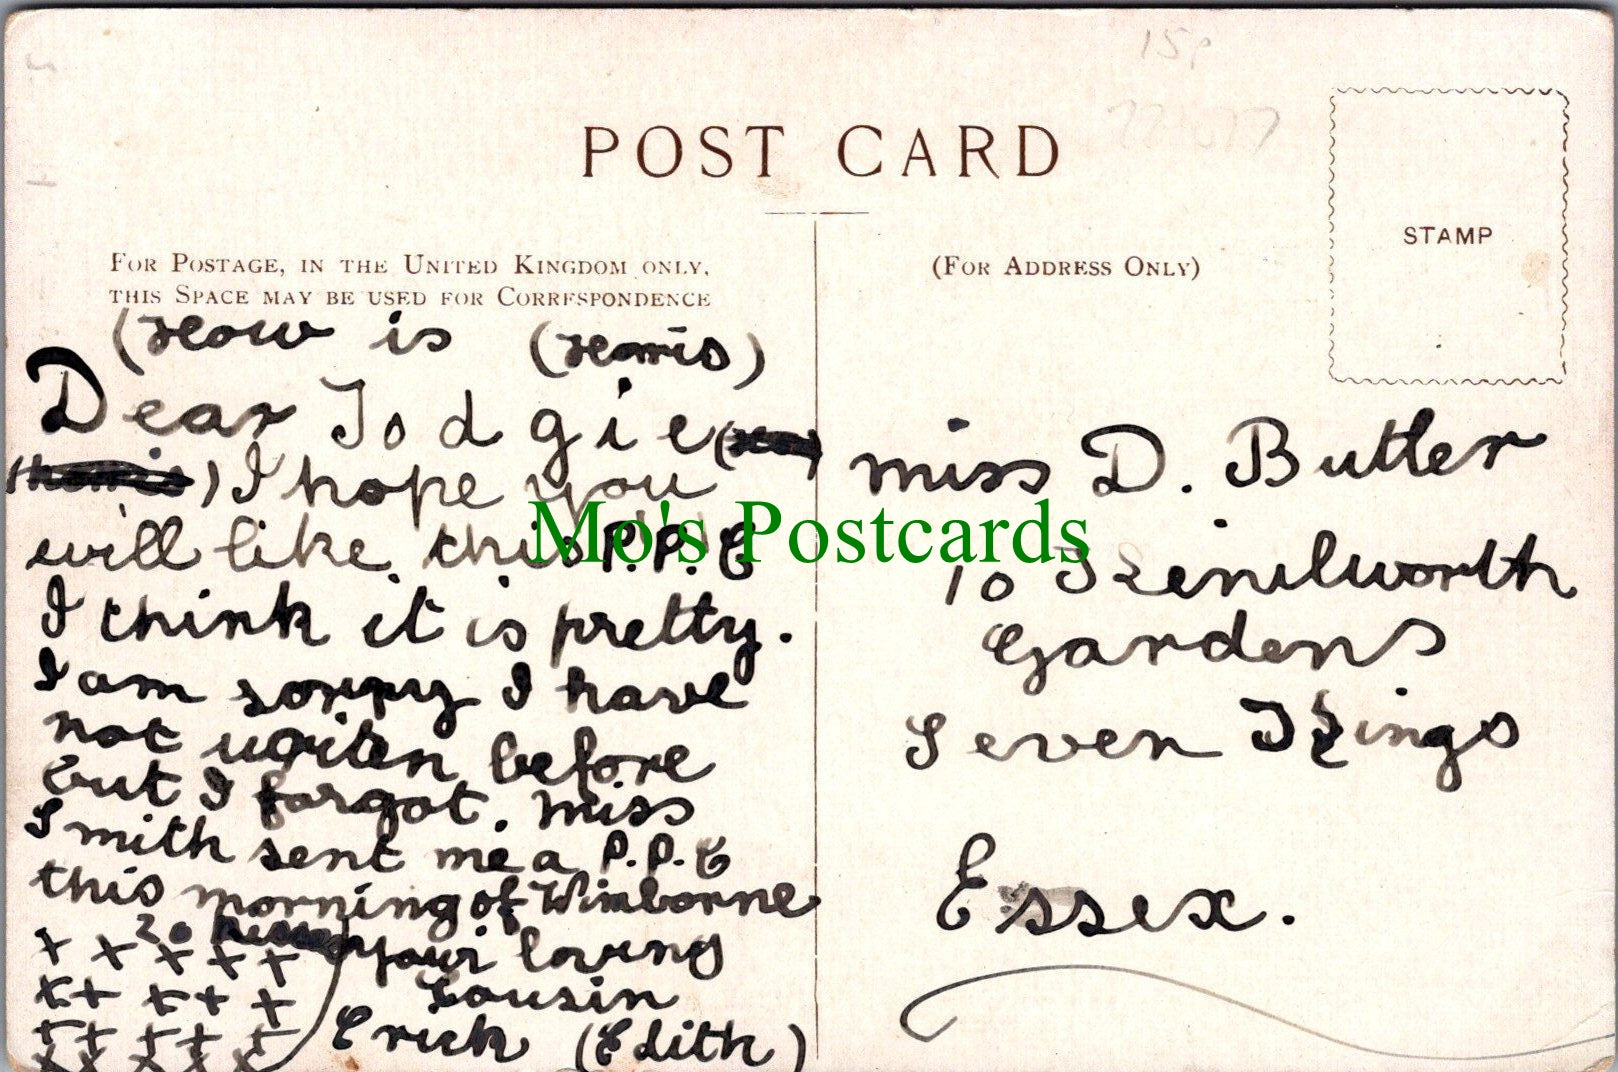 15p
POST CARD
STAMP
FOR POSTAGE, IN THE UNITED KINGDOM ONLY,
THIS SPACE MAY BE USED FOR CORRESPONDENCE
(FOR ADDRESS ONLY)
(How is
Dear Todgie
I hope you
will like this P.P.C
I think it is pretty.
I am sorry I have
not writen before
but I forgot. Miss
Smith sent me a P.P.C
this morning of Wimborne
20 your loving
Cousin
Erick (Edith)
Miss D. Butler
10 Kenilworth
Gardens
Seven Kings
Essex.
Mo's Postcards